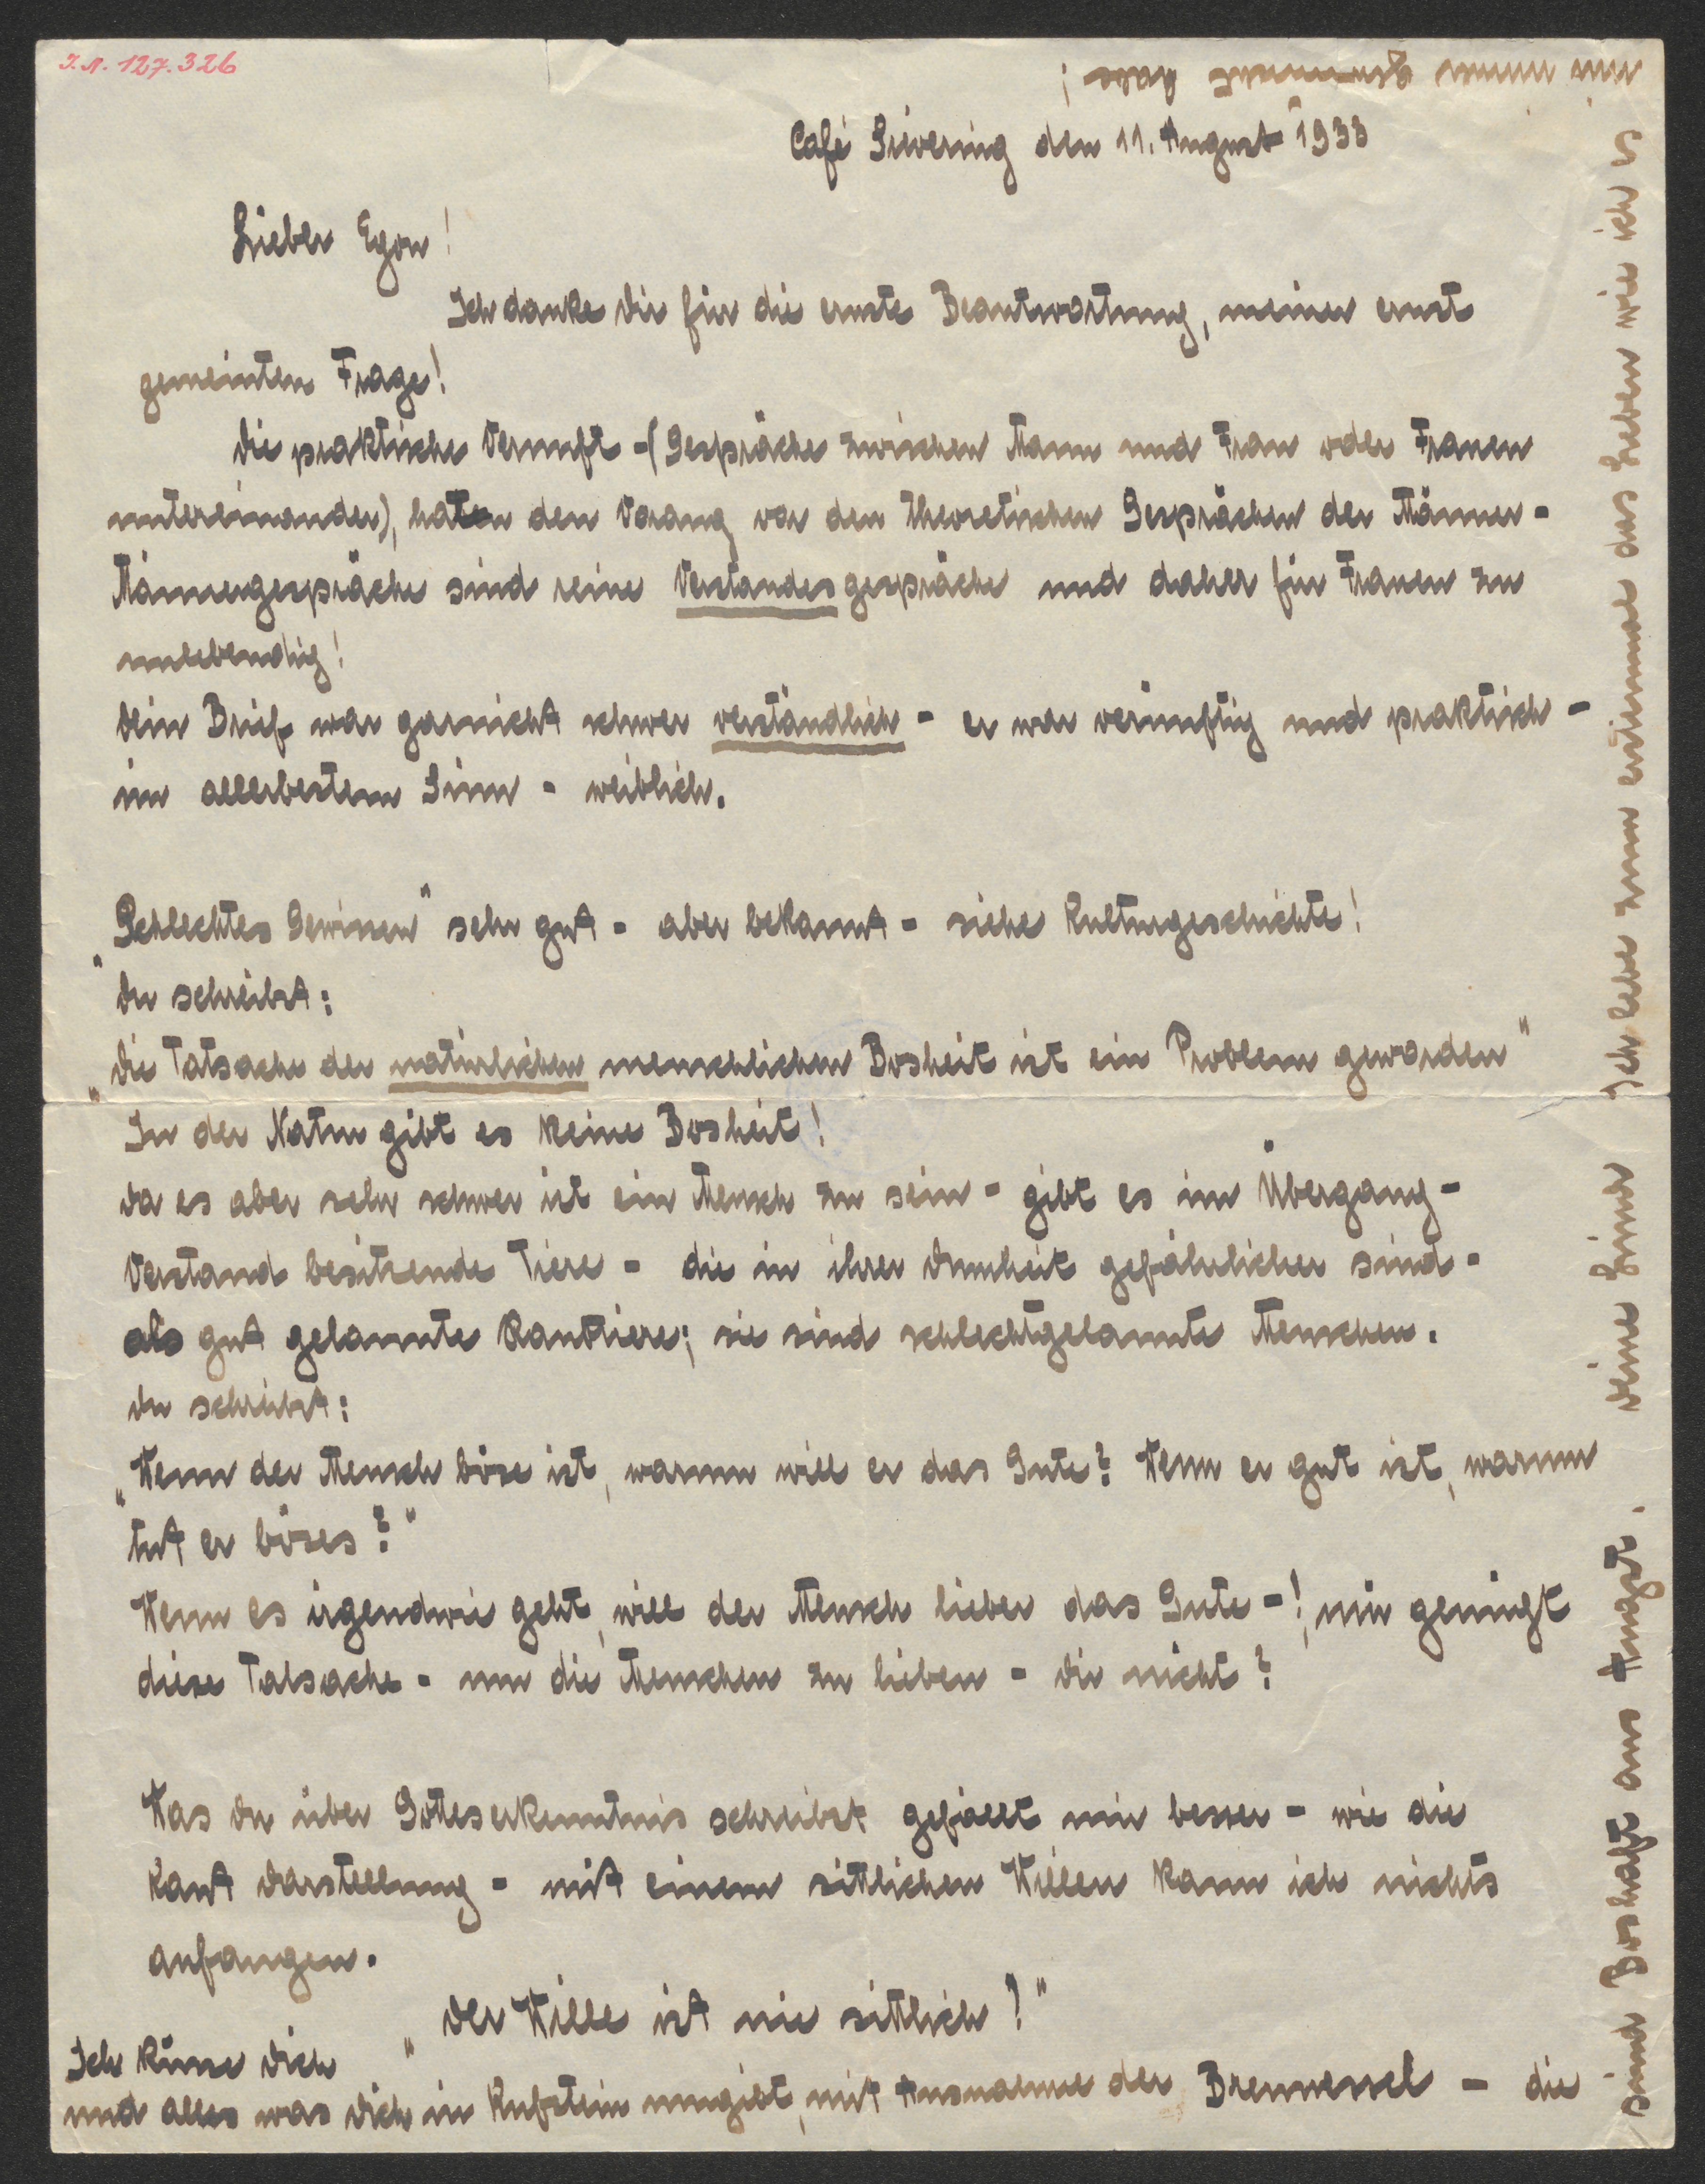 I.N. 127.326
Café Sievering den 11. August 1933
Lieber Egon!
Ich danke Dir für die ernste Beantwortung, meiner ernst
gemeinten Frage!
Die praktische Vernunft - (Gespräche zwischen Mann und Frau oder Frauen
untereinander), haten den Vorang vor den theoretischen Gesprächen der Männer -
Männergespräche sind reine Verstandesgespräche und daher für Frauen zu
unlebendig!
Dein Brief war garnicht schwer verständlich - er war vernünftig und praktisch -
im allerbestem Sinn - weiblich.
„Schlechtes Gewissen" sehr gut - aber bekannt - siehe Kulturgeschichte!
Du schreibst:
„Die Tatsache der natürlichen menschlichen Bosheit ist ein Problem geworden"
In der Natur gibt es keine Bosheit!
Da es aber sehr schwer ist ein Mensch zu sein - gibt es im Übergang -
Verstand besitzende Tiere - die in ihrer Dumheit gefährlicher sind -
als gut gelaunte Raubtiere; sie sind schlechtgelaunte Menschen.
Du schreibst:
„Wenn der Mensch böse ist, warum will er das Gute? Wenn er gut ist, warum
tut er böses?"
Wenn es irgendwie geht, will der Mensch lieber das Gute -!, mir genügt
diese Tatsache - um die Menschen zu lieben - Dir nicht?
Was Du über Gotteserkenntnis schreibst gefällt mir besser - wie die
Kant Darstellung - mit einem sittlichen Willen kann ich nichts
anfangen.
„Der Wille ist nie sittlich!"
Ich küsse Dich
und alles was Dich in Kufstein umgibt, mit Ausnahme der Brennessel - die
sind Boshaft aus Angst. Deine Lina
Ich lebe zum erstenmal das Leben wie ich es
mir immer gewünscht habe!